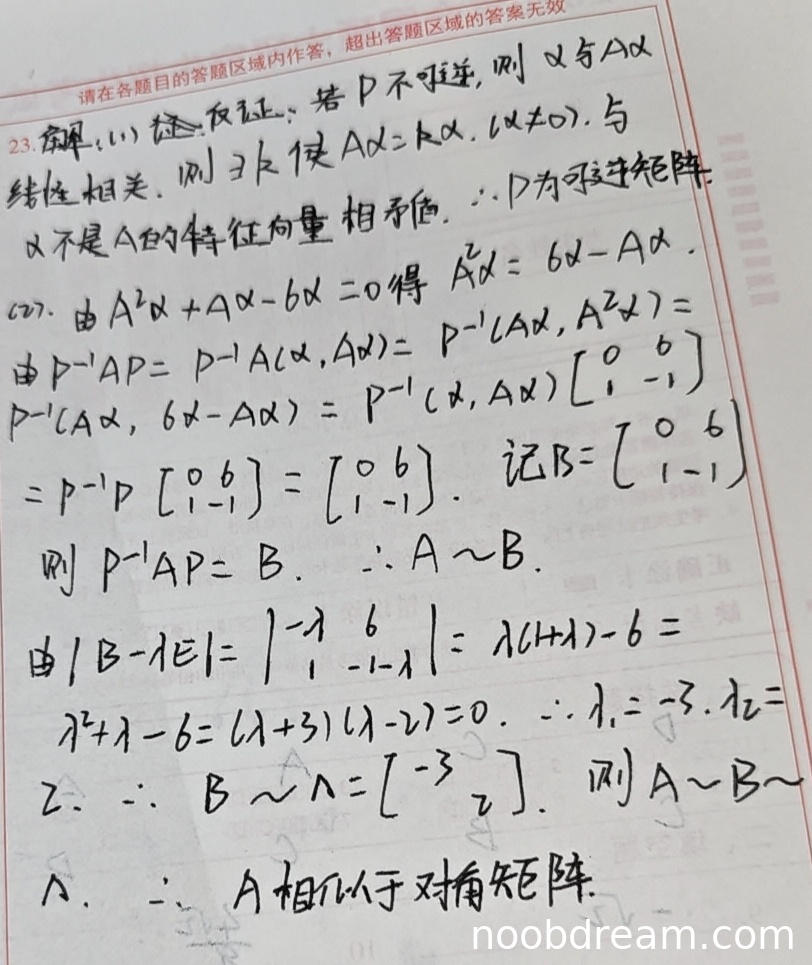 请在各题目的答题区域内作答，超出答题区域的答案无效
23. 解:(1) 反证: 若P不可逆, 则 α与Aα
线性相关. 则∃k使 Aα=kα. (α≠0). 与
α不是A的特征向量相矛盾. ∴P为可逆矩阵.
(2). 由A²α+Aα-6α=0得 A²α=6α-Aα.
由P⁻¹AP=P⁻¹A(α,Aα)=P⁻¹(Aα,A²α)=
P⁻¹(Aα, 6α-Aα)=P⁻¹(α,Aα)[0 6; 1 -1]
=P⁻¹P[0 6; 1 -1]=[0 6; 1 -1]. 记B=[0 6; 1 -1]
则 P⁻¹AP=B. ∴A~B.
由|B-λE|=|-λ 6; 1 -1-λ|=λ(1+λ)-6=
λ²+λ-6=(λ+3)(λ-2)=0. ∴λ₁=-3. λ₂=
2. ∴ B~Λ=[-3 2]. 则A~B~
Λ. ∴ A相似于对角矩阵.
noobdream.com